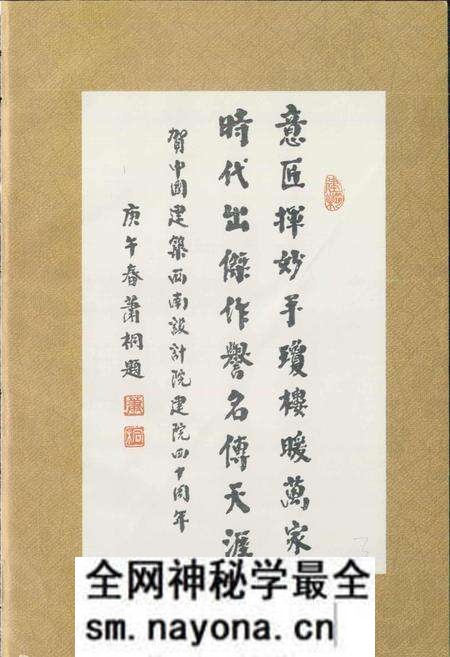 意匠揮妙手瓊樓暖萬家
時代出傑作譽名傳天涯
賀中國建築西南設計院建院四十周年
庚午春蕭桐題
全网神秘学最全
sm.nayona.cn